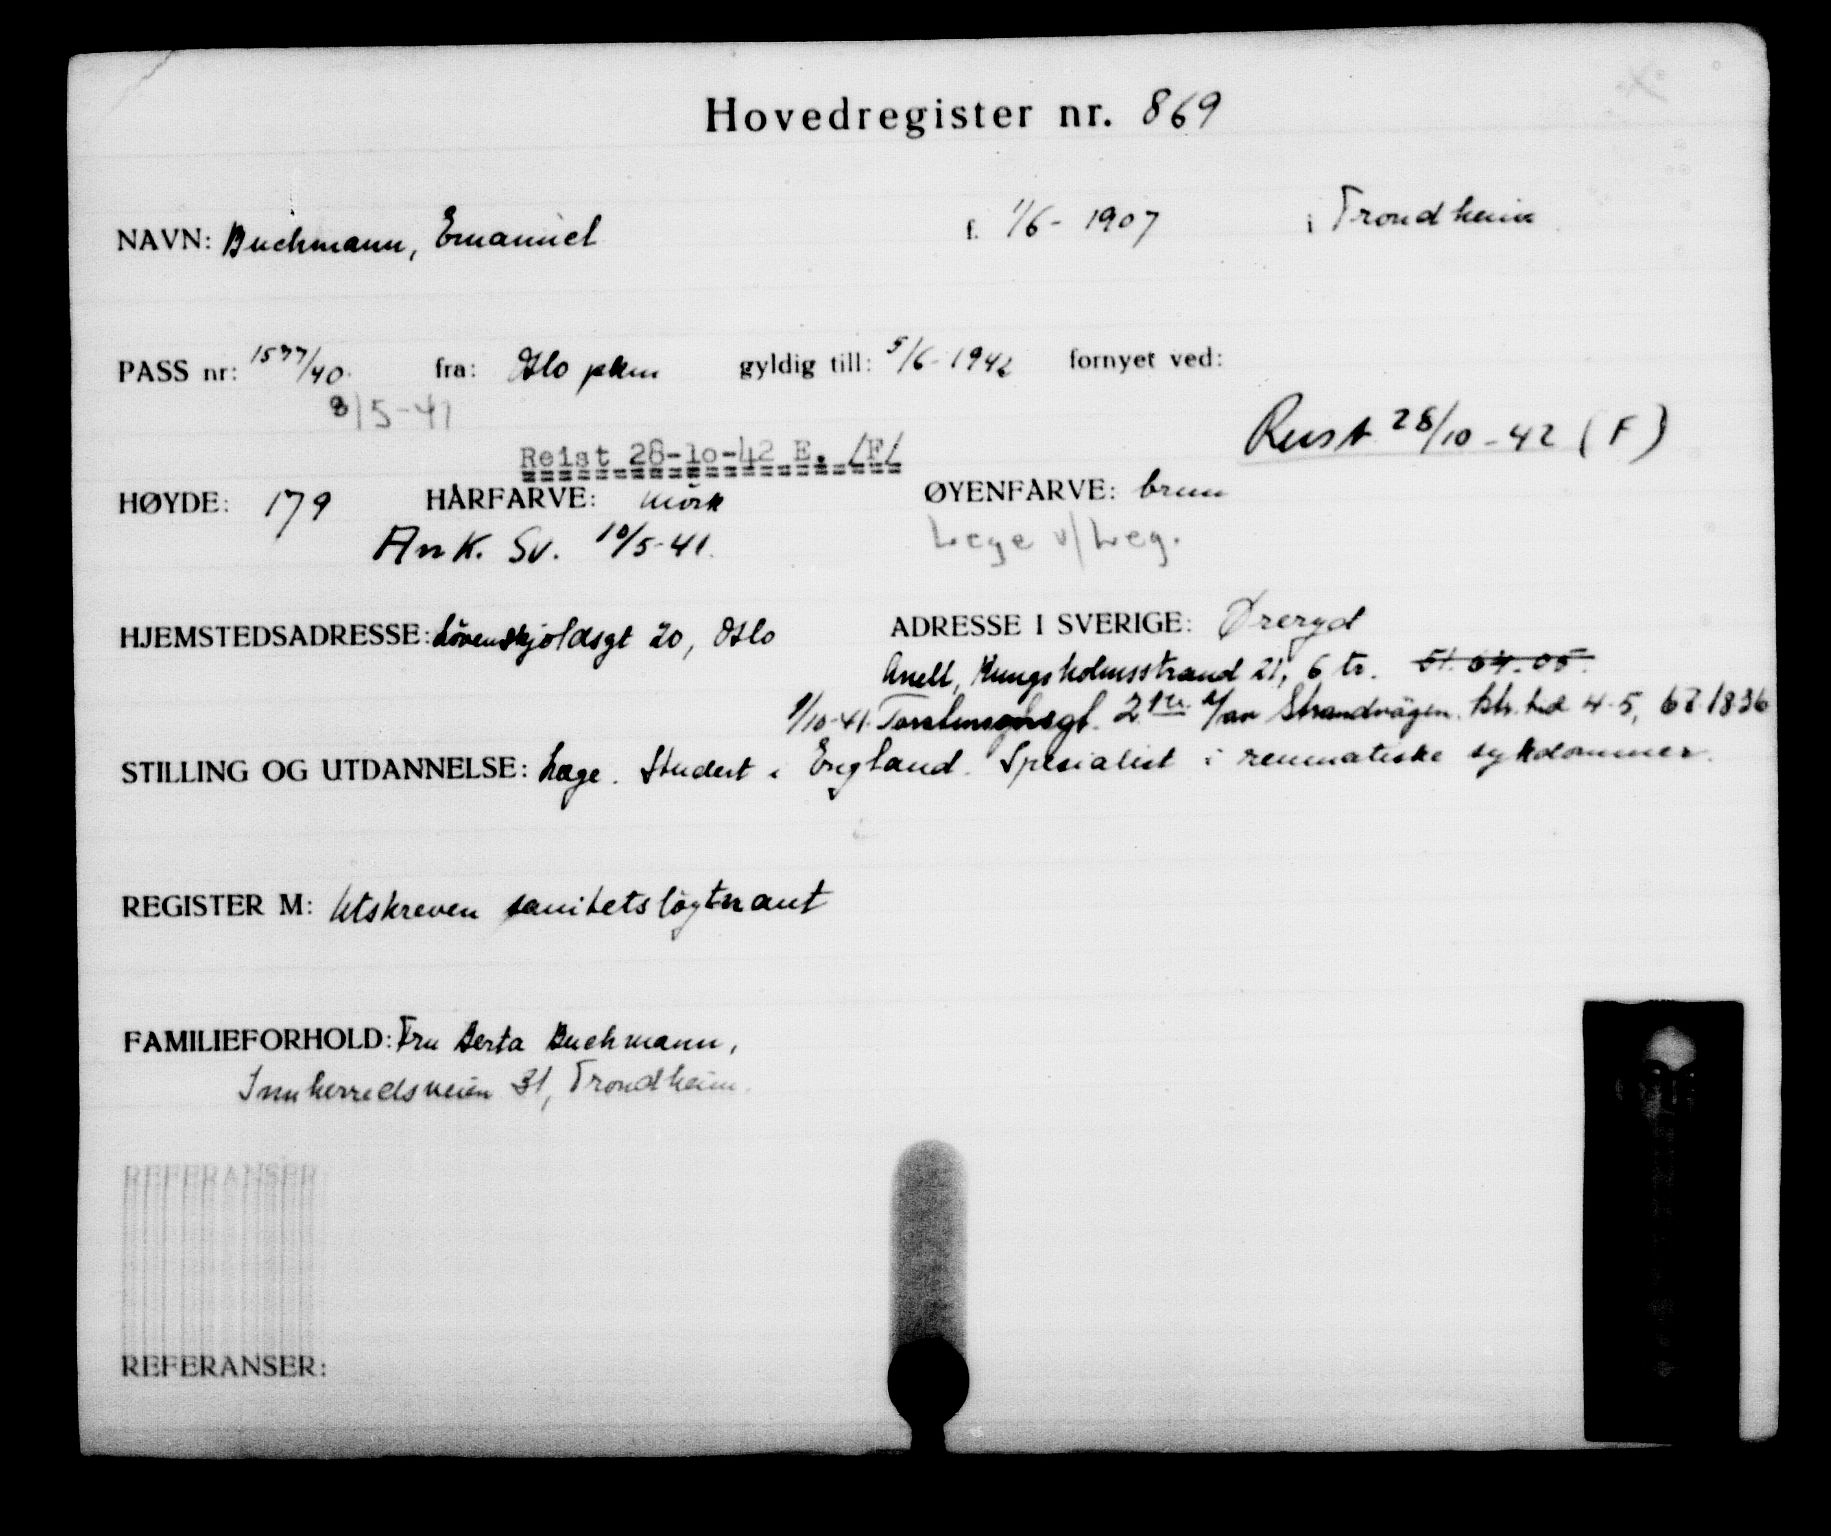 Hovedregister nr. 869
NAVN: Buchmann, Emanuel f. 1/6 - 1907 i Trondheim
PASS nr: 1577/40 fra: Oslo pkm gyldig till: 5/6 - 1942 fornyet ved:
8/5-41
Reist 28/10-42 (F)
Reist 28-10-42 E. /F/
HØYDE: 179 HÅRFARVE: mörk ØYENFARVE: brun
Ank. Sv. 10/5-41. Lege v/Leg.
HJEMSTEDSADRESSE: Lövenskjoldsgt 20, Oslo ADRESSE I SVERIGE: Öreryd
Anell, Kungsholmsstrand 21, 6 tr. 51.64.05.
1/10-41. 2 Strandvägen. 4-5, 67 1836
STILLING OG UTDANNELSE: Læge. Studert i England. Spesialist i reumatiske sykdommer.
REGISTER M: Utskreven sanitetslöytnant
FAMILIEFORHOLD: Fru Berta Buchmann,
Innherredsveien 31, Trondheim.
REFERANSER
REFERANSER: